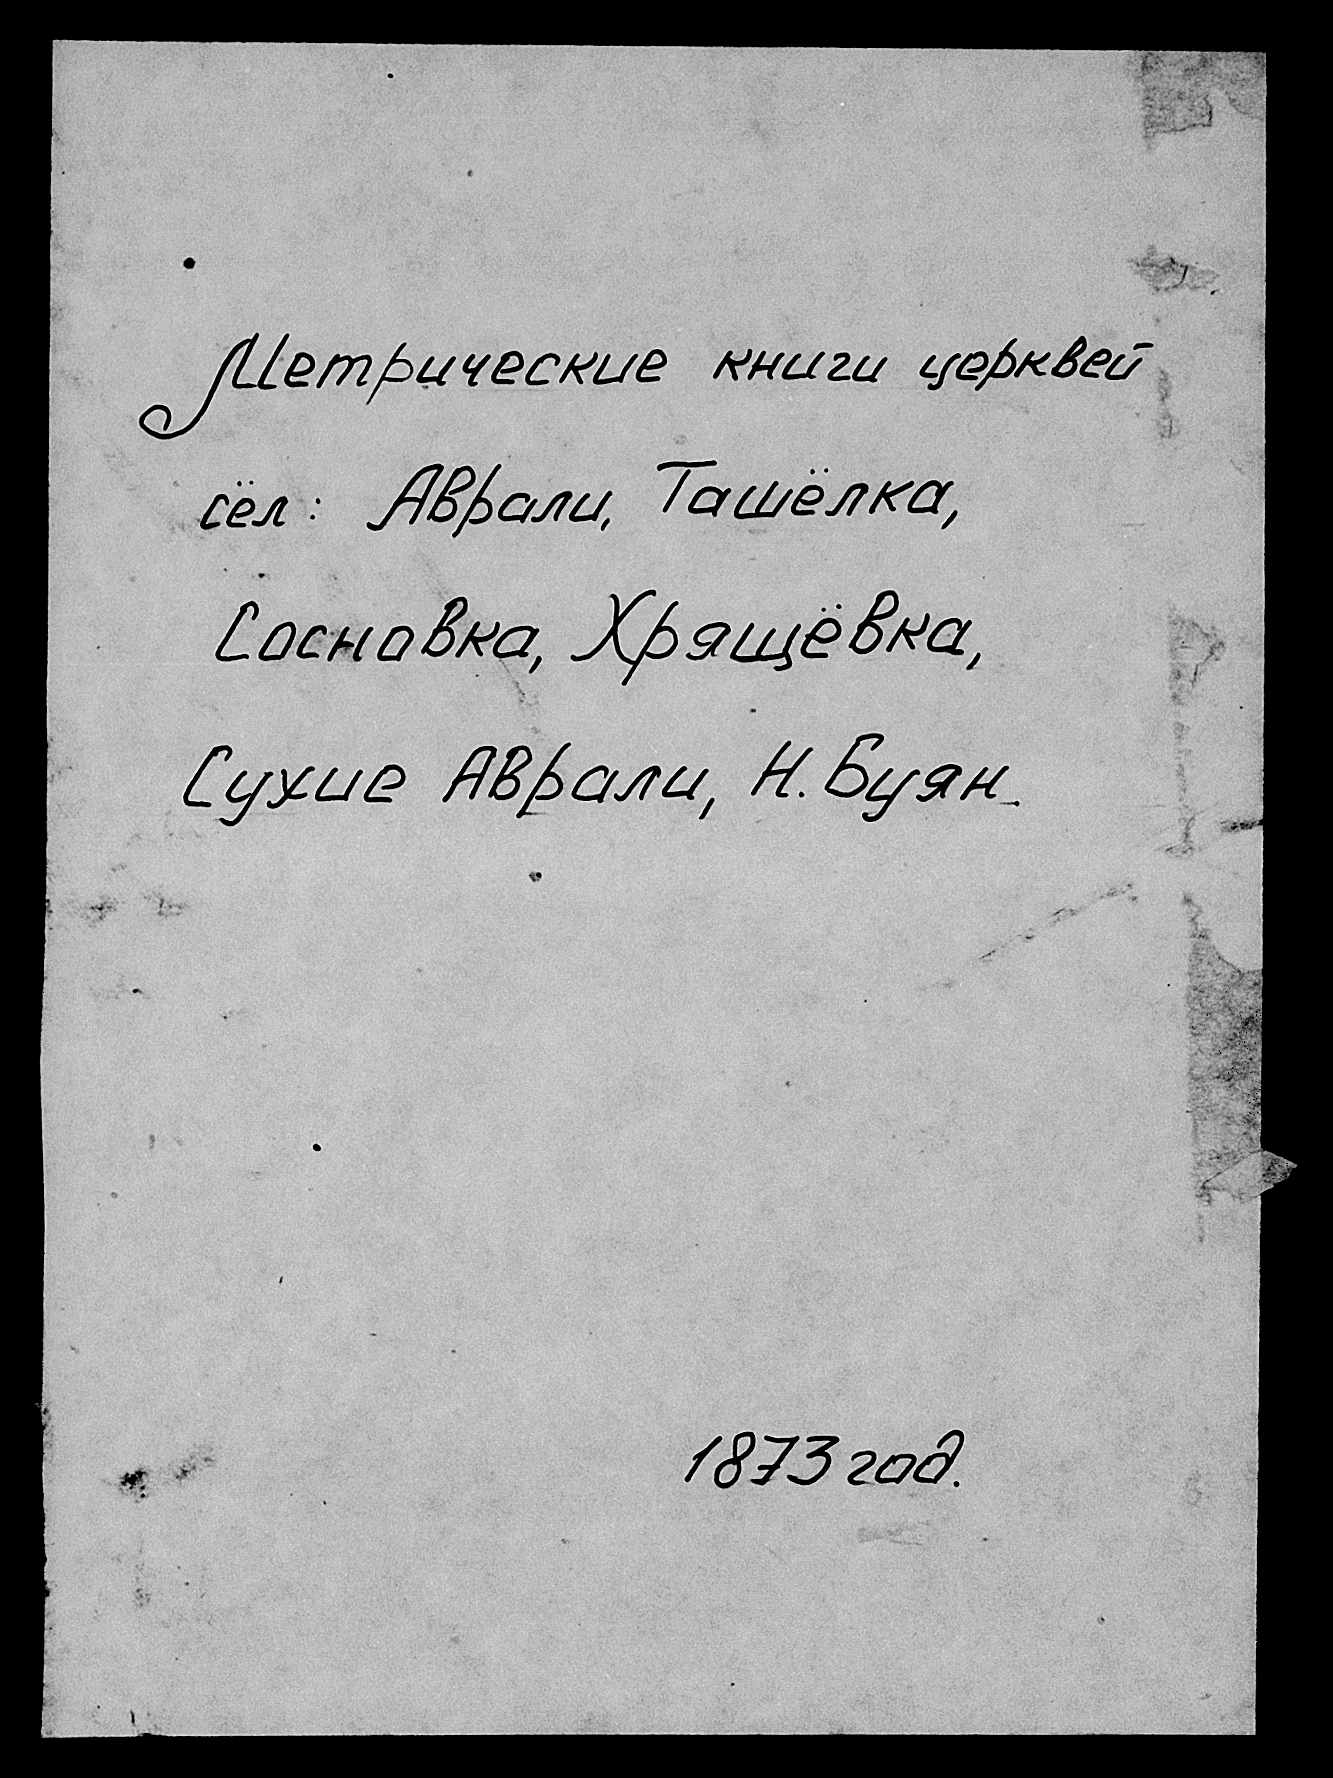 Метрические книги церквей
сёл: Аврали, Ташёлка,
Сосновка, Хрящёвка,
Сухие Аврали, Н. Буян.
1873 год.